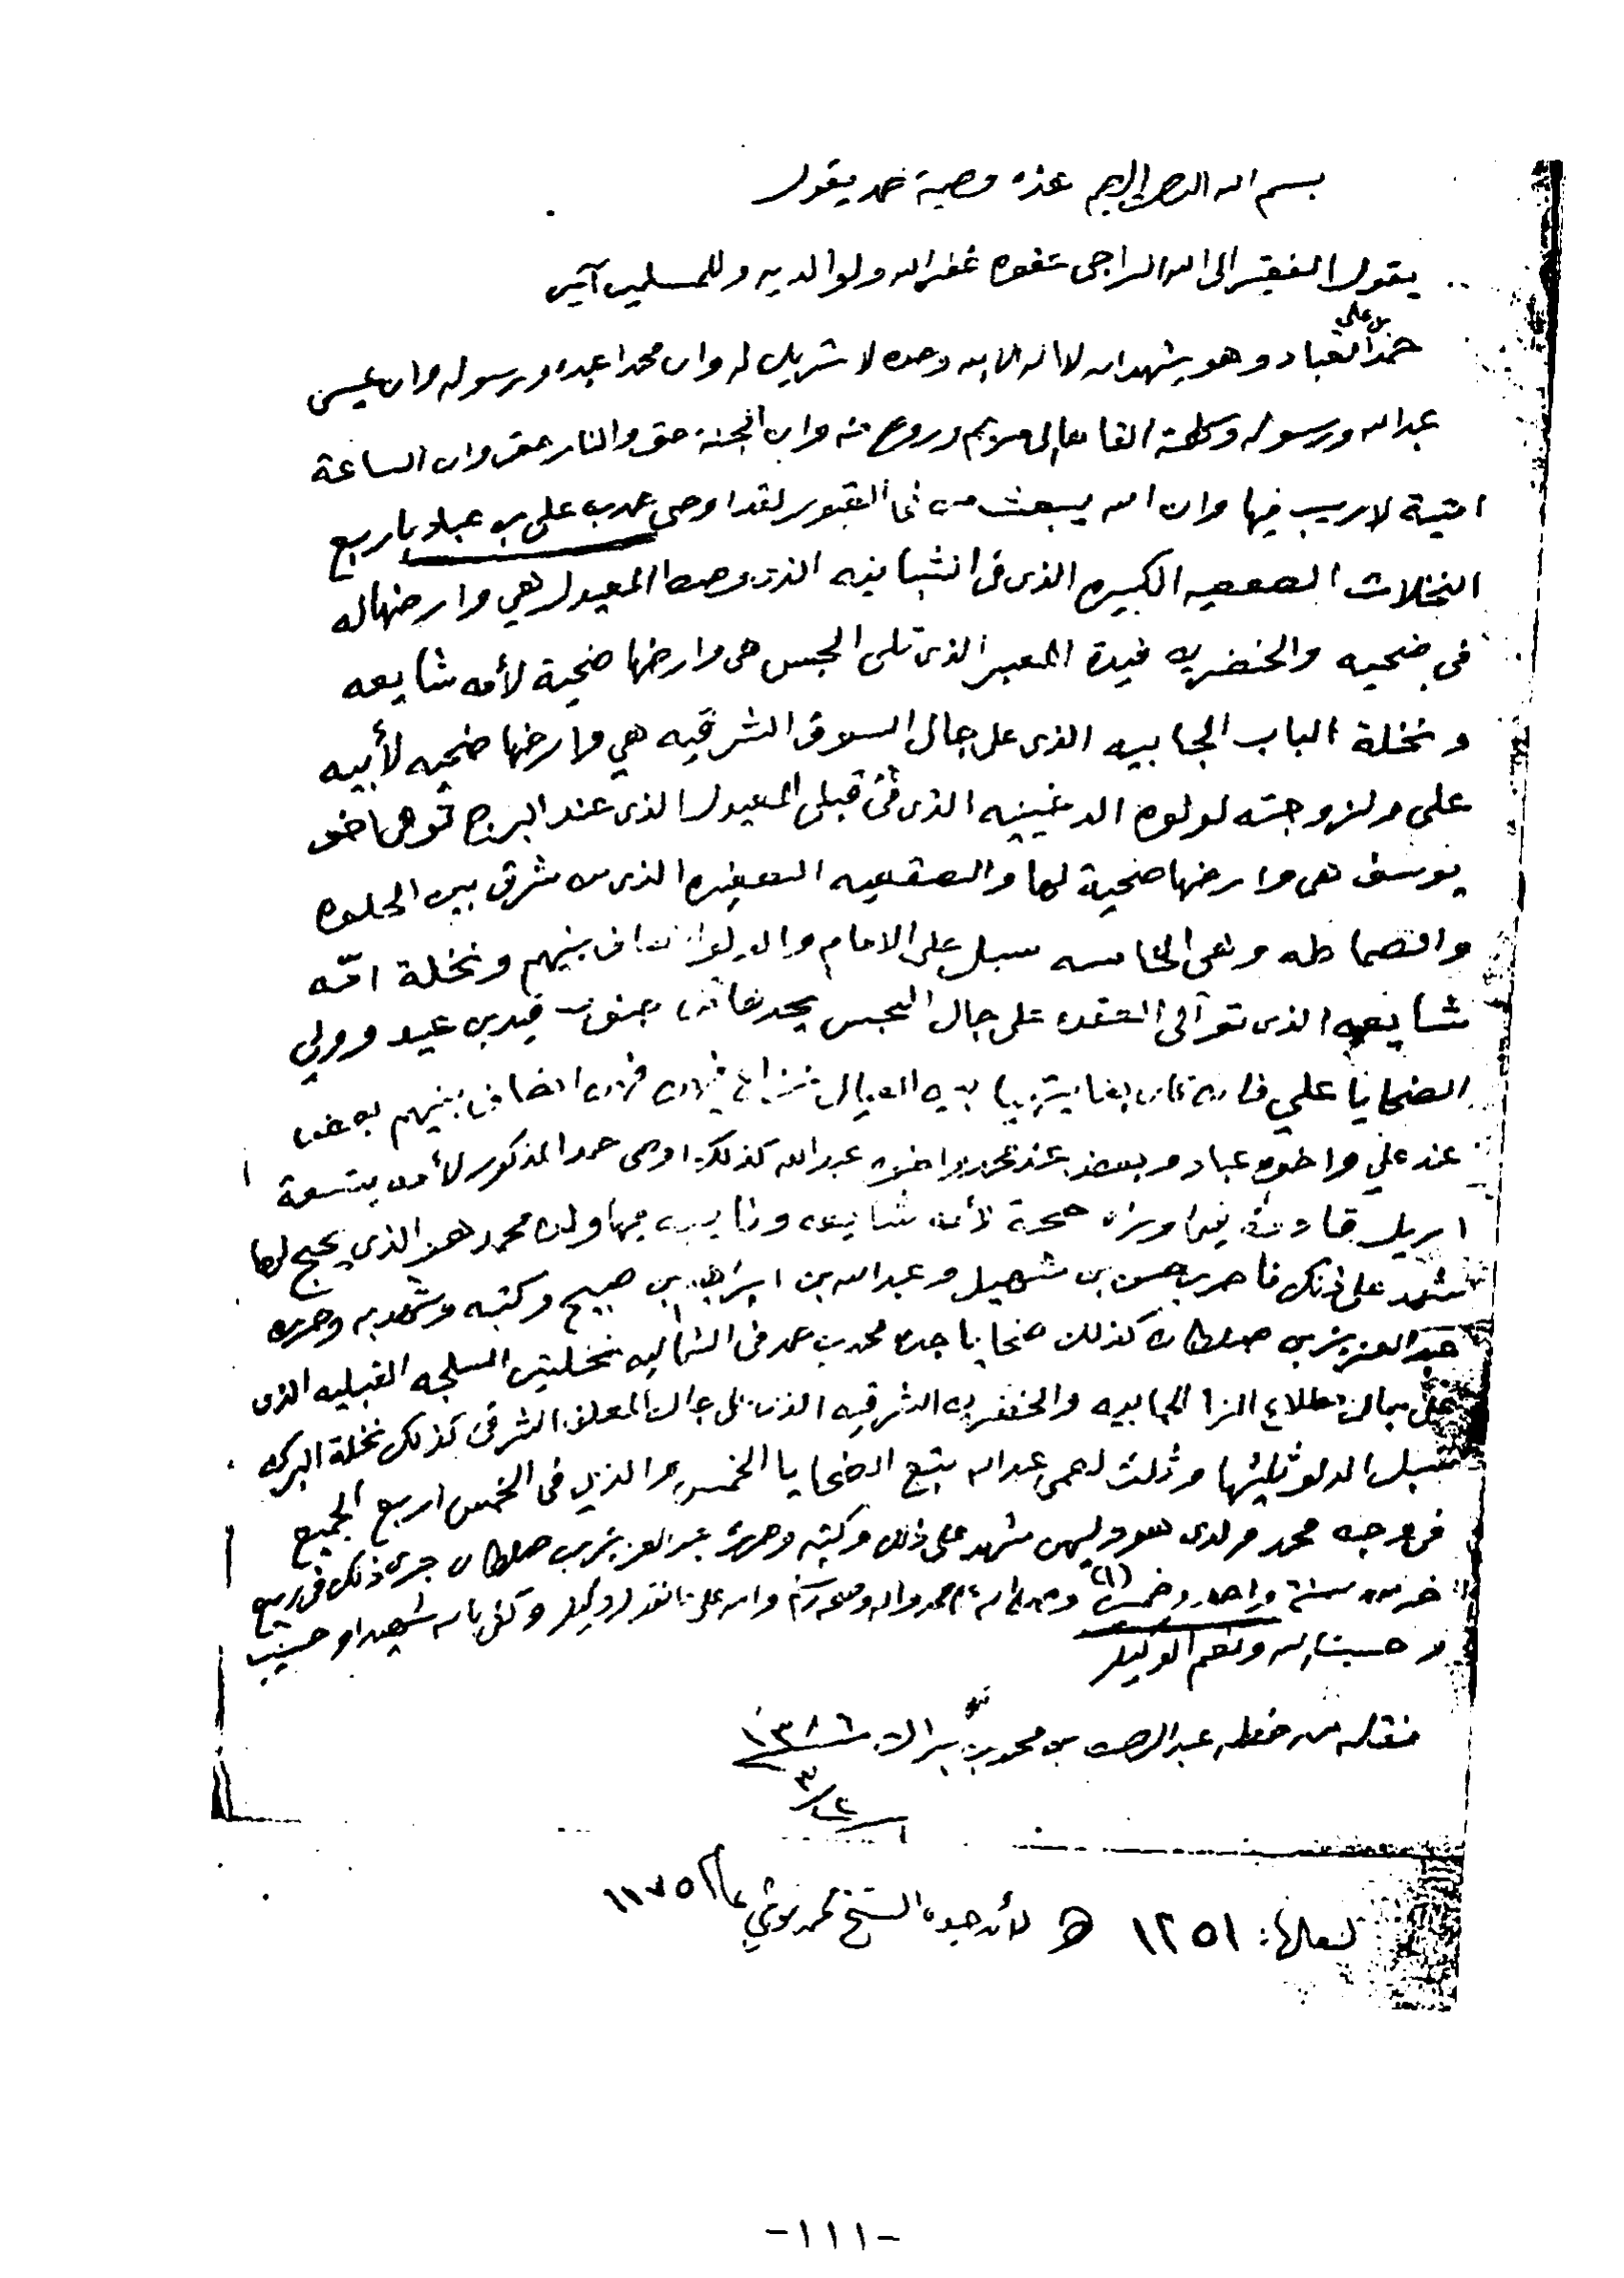 بسم الله الرحمن الرحيم هذه وصية حمد يقول
يقول الفقير الى الله الراجي عفوه غفر الله ولوالديه وللمسلمين آمين
بن علي
حمد العباد وهو يشهد ان لا اله الا الله وحده لا شريك له وان محمدا عبده ورسوله وان عيسى
عبدالله ورسوله وكلمته القاها الى مريم وروح منه وان الجنة حق والنار حق وان الساعة
اتية لا ريب فيها وان الله يبعث من في القبور لقد اوصى حمد بن علي بن عباد باربع
النخلات الصقعيه الكبيره الذي في الشبانيه الذي وسط المعيدل هي وارضها له
في ضحيه والخضريه فيدة المعبر الذي تلى الجبس هي وارضها ضحية لأمه شايعه
ونخلة الباب الجابيه الذي على جال السوق الشرقيه هي وارضها ضحيه لأبيه
علي ولزوجته لولوه الدخينيه الذي في قبلي المعيدل الذي عند البرج توهي اخو
يوسف هي وارضها ضحية لها والصقعيه الصغيره الذي من شرق بين الحلوه
والصماطه وهي الخامسه سبل على الامام والدلو انصاف بينهم ونخلة امه
شايعه الذي توالي العقده على جال الجبس يحدها من جنوب فيد بن عيد وولي
الضحايا علي عيال انصاف بينهم بعض
عند علي واخوه عباد وبعض عند محمد واخوه عبدالله كذلك اوصى حمد المذكور لأمه بتسعة
اريل حجة لأمه شايعه ونايب فيها ولده محمد هو الذي يحج لها
شهد على ذلك ناصر بن حسن بن شهيل وعبدالله بن ابراهيم بن صبيح وكتبه وشهد به وحرره
عبدالعزيز بن كذلك ضحايا جده محمد بن حمد في الشماليه نخلتين السلجه القبليه الذي
على جال مطلاع الجابيه والخضريه الشرقيه الذي على جال المعلق الشرقي كذلك نخلة البركه
سبل الدلو ثلثيها وثلث لعمي عبدالله يتبع الضحايا الخمس والذي في الخمس اربع الجميع
في وجه محمد شهد على ذلك وكتبه وحرره عبدالعزيز بن جرى ذلك في ربيع
اخر من سنة واحد وخمسين (١) وصلى الله على محمد واله وصحبه وسلم والله على ما نقول وكيل وكفى بالله شهيدا وحسيب
و حسبنا الله ونعم الوكيل
نقله من خطه عبدالرحمن بن محمد بن ١٣٨٦
٣/٢
لعلها: ١٢٥١ هـ لأن جده الشيخ محمد توفي عام ١١٧٥
-١١١-